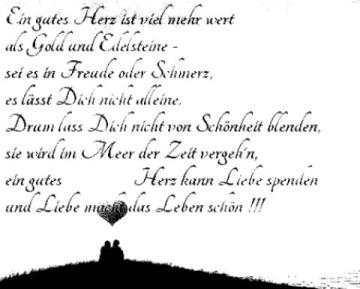 Ein gutes Herz ist viel mehr wert
als Gold und Edelsteine -
sei es in Freude oder Schmerz,
es lässt Dich nicht alleine.
Drum lass Dich nicht von Schönheit blenden,
sie wird im Meer der Zeit vergeh'n,
ein gutes Herz kann Liebe spenden
und Liebe macht das Leben schön !!!